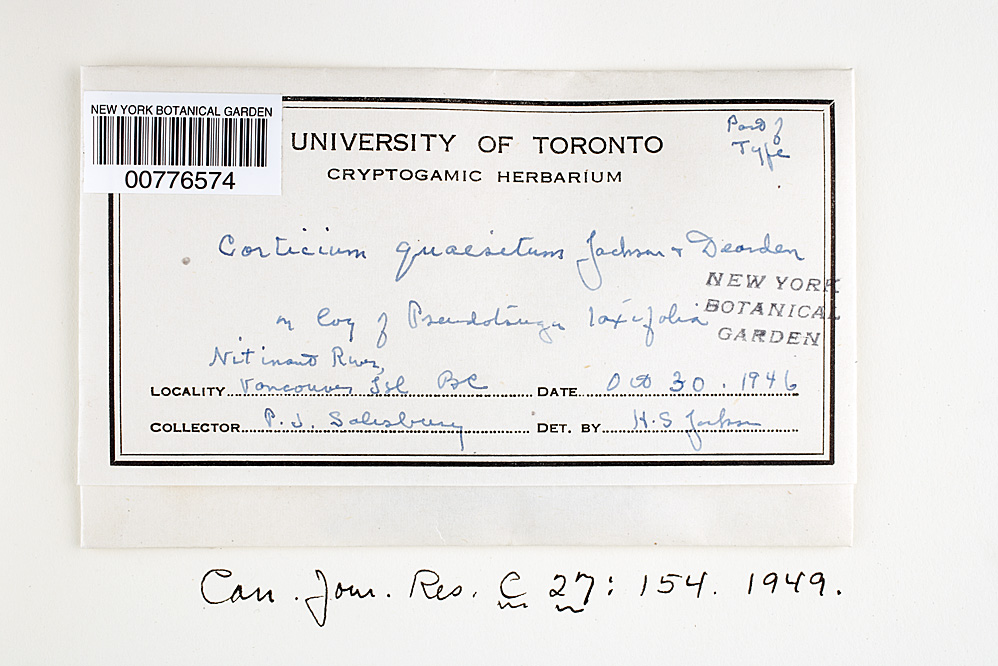 NEW YORK BOTANICAL GARDEN
00776574
UNIVERSITY OF TORONTO
CRYPTOGAMIC HERBARIUM
Part of
Type
Corticium quaesitum Jackson & Dearden
NEW YORK
BOTANICAL
GARDEN
on log of Pseudotsuga taxifolia
Nitinant River,
LOCALITY Vancouver Isl BC DATE Oct 30. 1946
COLLECTOR P. J. Salisbury DET. BY H. S. Jackson
Can. Jour. Res. C 27: 154. 1949.